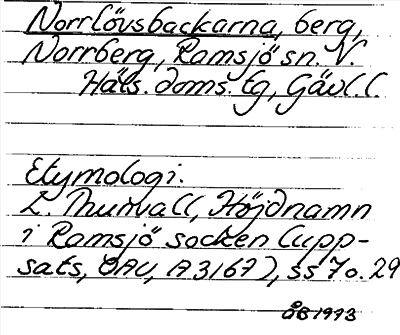 Norrlövsbackarna, berg,
Norrberg, Ramsjö sn. V.
Häls. doms. tg, Gävl. l.
Etymologi:
L. Thunvall, Höjdnamn
i Ramsjö socken (upp-
sats, OAU, A3167), ss 7 o. 29
ÅB 1993